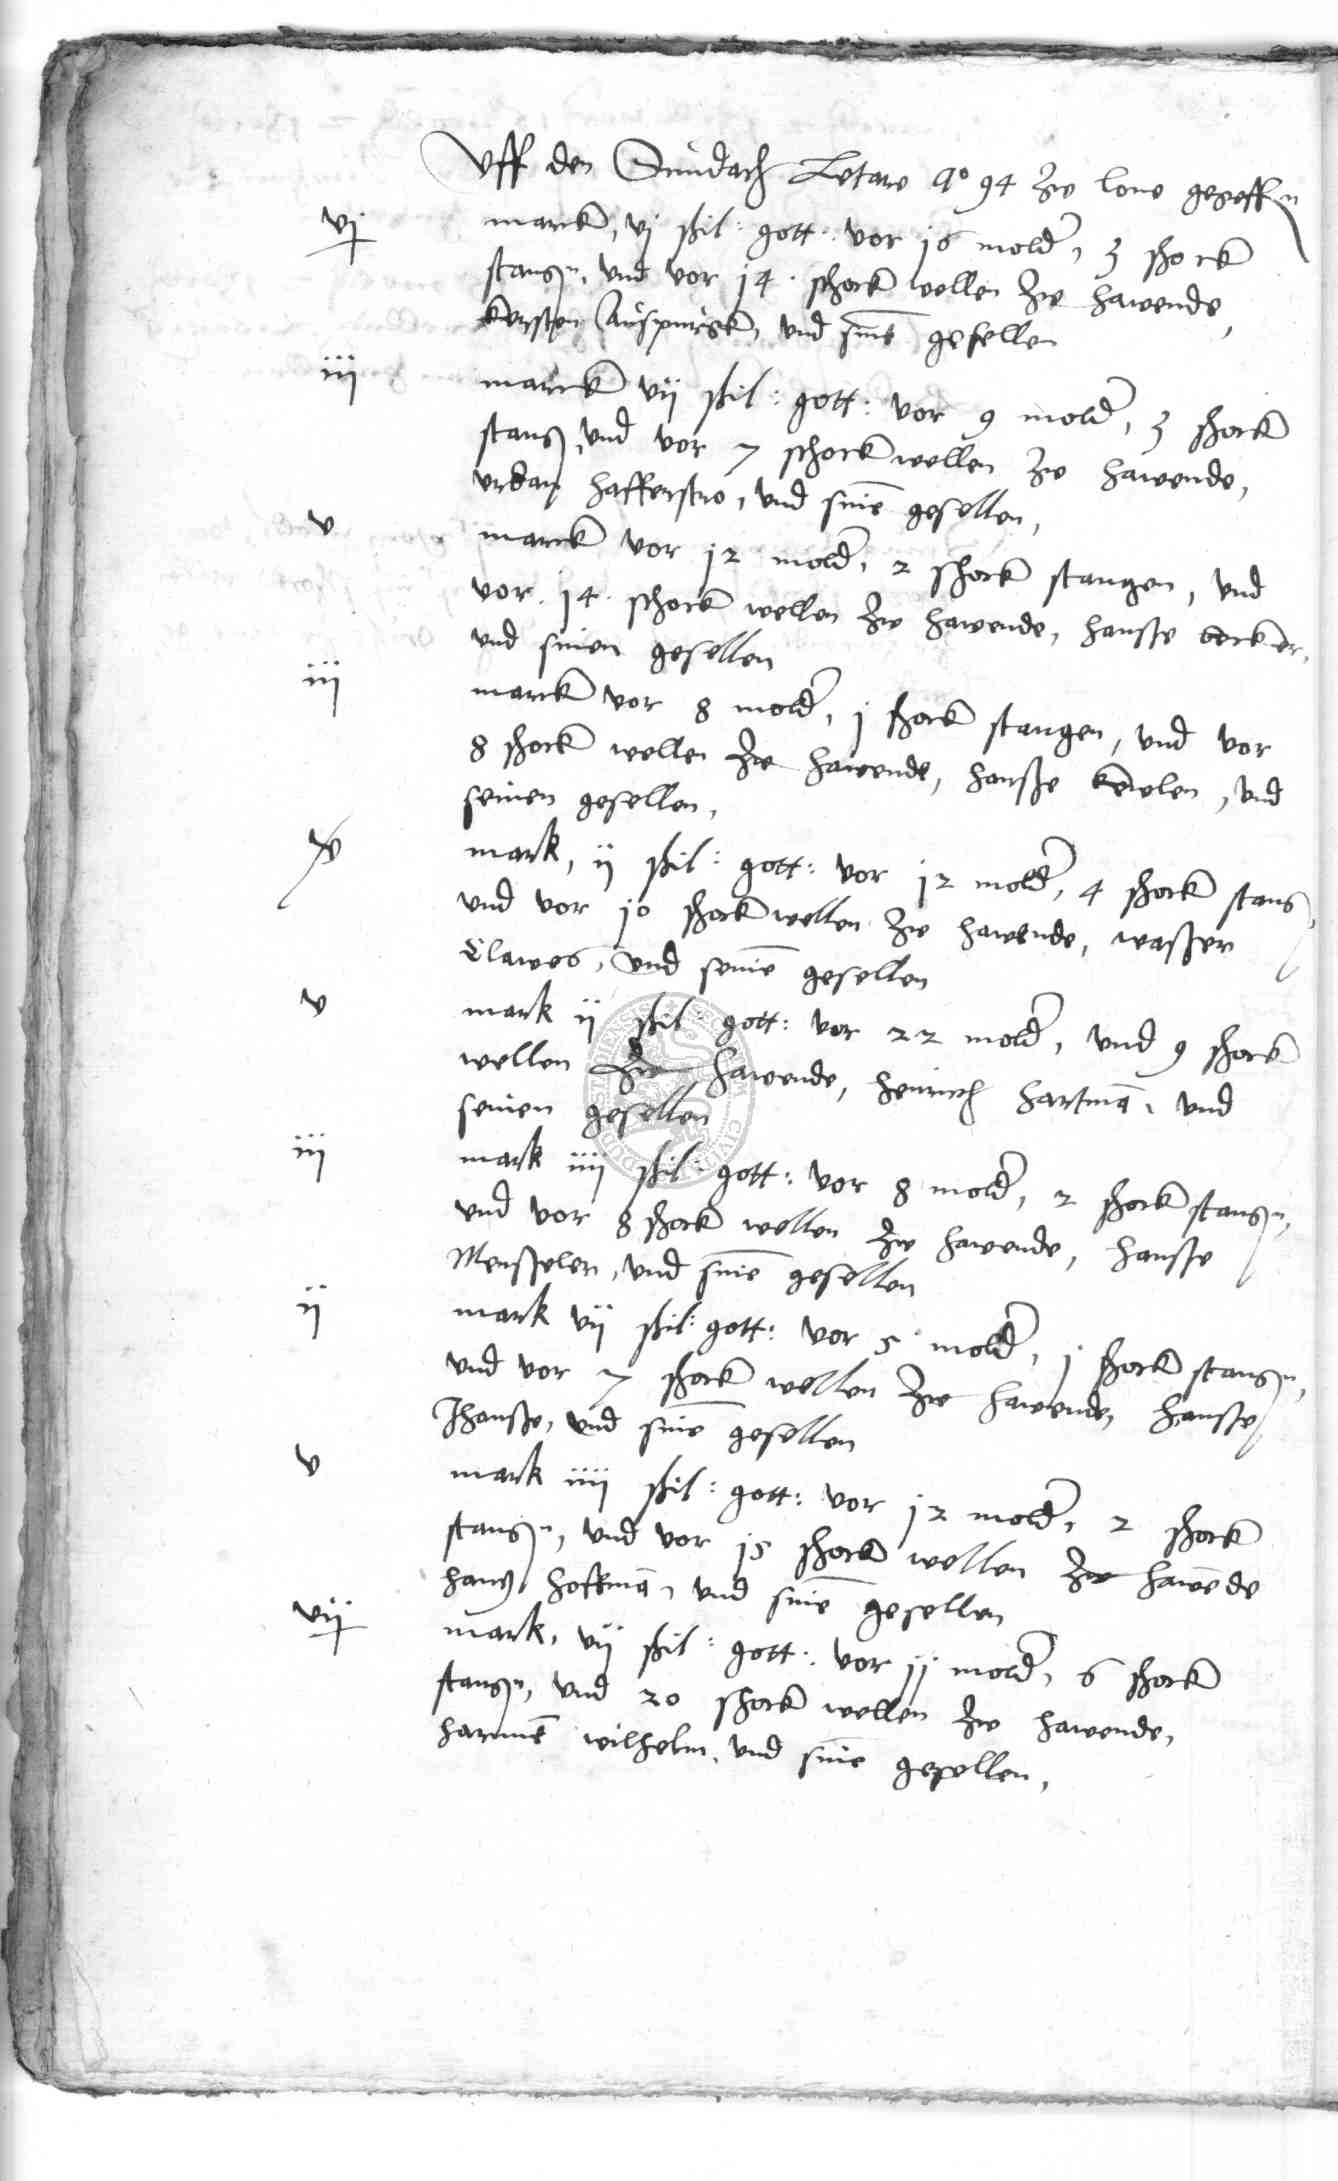 Uff den Sundach Letare Aº 94 zu lone gegeffn
vj marck, vj schil: gott: vor 16 mold, 3 schock
stangn, und vor 14 schock wellen zu hawende,
kersten und sine gesellen
iij marck vij schil: gott: vor 9 mold, 3 schock
stang, und vor 7 schock wellen zu hawende,
urban hafferstro, und sine gesellen,
v marck vor 12 mold, 2 schock stangen, und
vor 14 schock wellen zu hawende, hansse becker,
und sinen gesellen
iij marck vor 8 mold, j schock stangen, und vor
8 schock wellen zu hawende, hansse und
seinen gesellen,
mark, ij schil: gott: vor 12 mold, 4 schock stang
und vor 10 schock wellen zu hawende, wasser
Clawes, und seine gesellen
v mark ij schil: gott: vor 22 mold, und 9 schock
wellen zu hawende, heinrich hartman, und
seinen gesellen
iij mark iiij schil: gott: vor 8 mold, 2 schock stangn,
und vor 8 schock wellen zu hawende, hansse
und sine gesellen
ij mark vij schil: gott: vor 5 mold, j schock stangn,
und vor 7 schock wellen zu hawende, hansse
Jhansse, und sine gesellen
v mark iiij schil: gott: vor 12 mold, 2 schock
stangn, und vor 15 schock wellen zu hawende
hans hoffman, und sine gesellen
vij mark, vij schil: gott: vor 11 mold, 6 schock
stangn, und 20 schock wellen zu hawende,
wilhelm, und sine gesellen,